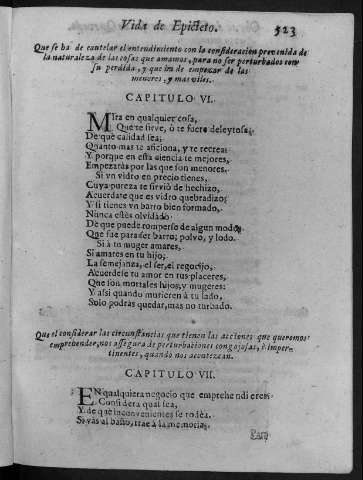 Vida de Epicteto. 523
Que se ha de cautelar el entendimiento con la consideracion prevenida de
la naturaleza de las cosas que amamos, para no ser perturbados con
su perdida, y que ha de empezar de las
menores, y mas viles.
CAPITULO VI.
MIra en qualquier cosa,
Que te sirve, ò te fuere deleytosa,
De què calidad sea;
Quanto mas te aficiona, y te recrea:
Y porque en esta ciencia te mejores,
Empezaràs por las que son menores.
Si un vidro en precio tienes,
Cuya pureza te sirviò de hechizo,
Acuerdate que es vidro quebradizo;
Y si tienes un barro bien formado,
Nunca estès olvidado
De que puede romperse de algun modo,
Que fue para ser barro; polvo, y lodo.
Si à tu muger amares,
Si amares en tu hijo,
La semejança, el ser, el regocijo,
Acuerdese tu amor en tus placeres,
Que son mortales hijos, y mugeres:
Y assi quando murieren à tu lado,
Solo podràs quedar, mas no turbado.
Que el considerar las circunstancias que tienen las acciones que queremos
emprehender, nos assegura de perturbaciones congojosas, è imper-
tinentes, quando nos acontezcan.
CAPITULO VII.
EN qualquiera negocio que emprehendieres
Considera qual sea,
Y de què inconvenientes se rodèa.
Si vas al baño, trae à la memoria,
Para